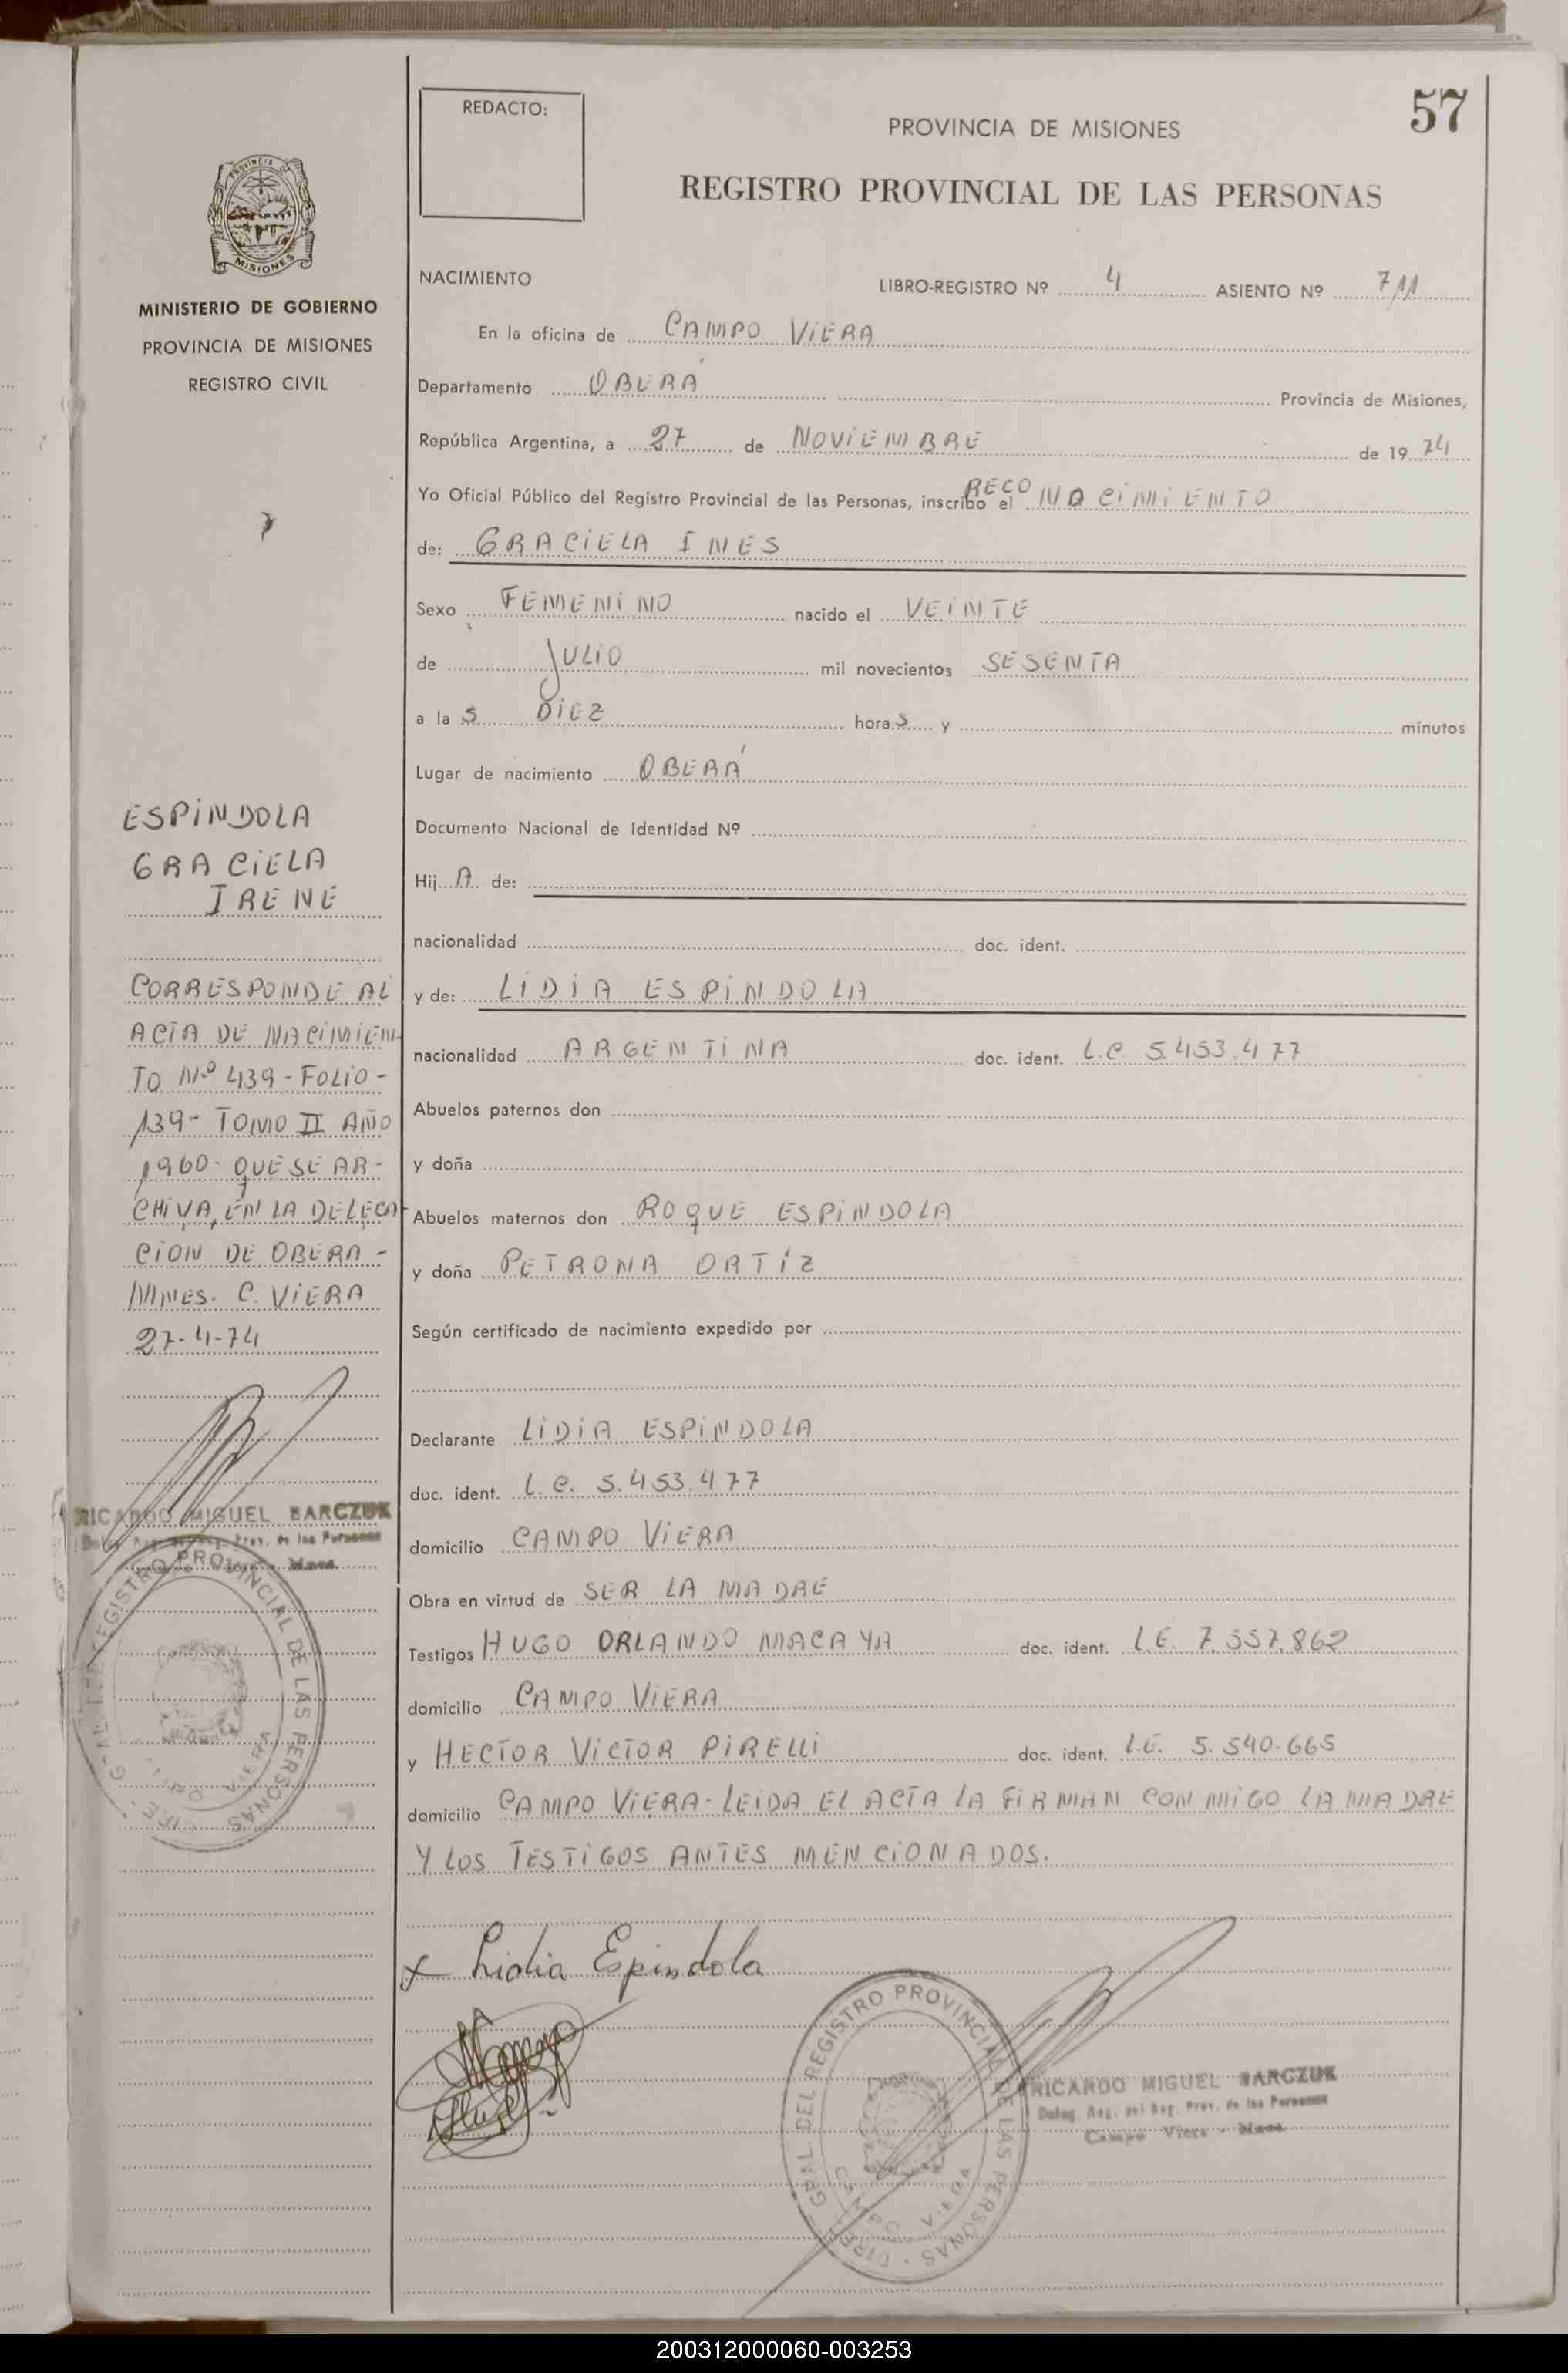 57
REDACTO:
PROVINCIA DE MISIONES
REGISTRO PROVINCIAL DE LAS PERSONAS
PROVINCIA DE
MISIONES
MINISTERIO DE GOBIERNO
PROVINCIA DE MISIONES
REGISTRO CIVIL
NACIMIENTO LIBRO-REGISTRO Nº 4 ASIENTO Nº 711
En la oficina de CAMPO VIERA
Departamento OBERÁ Provincia de Misiones,
República Argentina, a 27 de NOVIEMBRE de 19 74
Yo Oficial Público del Registro Provincial de las Personas, inscribo el RECONOCIMIENTO
de: GRACIELA INES
Sexo FEMENINO nacido el VEINTE
de JULIO mil novecientos SESENTA
a la S DIEZ hora S y minutos
Lugar de nacimiento OBERÁ
Documento Nacional de Identidad Nº
Hij A de:
nacionalidad doc. ident.
y de: LIDIA ESPINDOLA
nacionalidad ARGENTINA doc. ident. L.C. 5.453.477
Abuelos paternos don
y doña
Abuelos maternos don ROQUE ESPINDOLA
y doña PETRONA ORTÍZ
Según certificado de nacimiento expedido por
Declarante LIDIA ESPINDOLA
doc. ident. L.C. 5.453.477
domicilio CAMPO VIERA
Obra en virtud de SER LA MADRE
Testigos HUGO ORLANDO MACAYA doc. ident. L.E. 7.557.862
domicilio CAMPO VIERA
y HECTOR VICTOR PIRELLI doc. ident. L.E. 5.540.665
domicilio CAMPO VIERA. LEIDA EL ACTA LA FIRMAN CONMIGO LA MADRE
Y LOS TESTIGOS ANTES MENCIONADOS.
x Lidia Espindola
GRAL. DEL REGISTRO PROVINCIAL DE LAS PERSONAS - DIRE
CAMPO VIERA
RICARDO MIGUEL BARCZUK
Deleg. Reg. del Reg. Prov. de las Personas
Campo Viera - Mnes.
ESPINDOLA
GRACIELA
IRENE
CORRESPONDE AL
ACTA DE NACIMIEN
TO Nº 439-FOLIO-
139- TOMO II AÑO
1960- QUE SE AR-
CHIVA, EN LA DELEGA
CION DE OBERA-
MNES. C. VIERA
27-4-74
RICARDO MIGUEL BARCZUK
Deleg. Reg. del Reg. Prov. de las Personas
Mnes.
GRAL. DEL REGISTRO PROVINCIAL DE LAS PERSONAS - DIRE
200312000060-003253